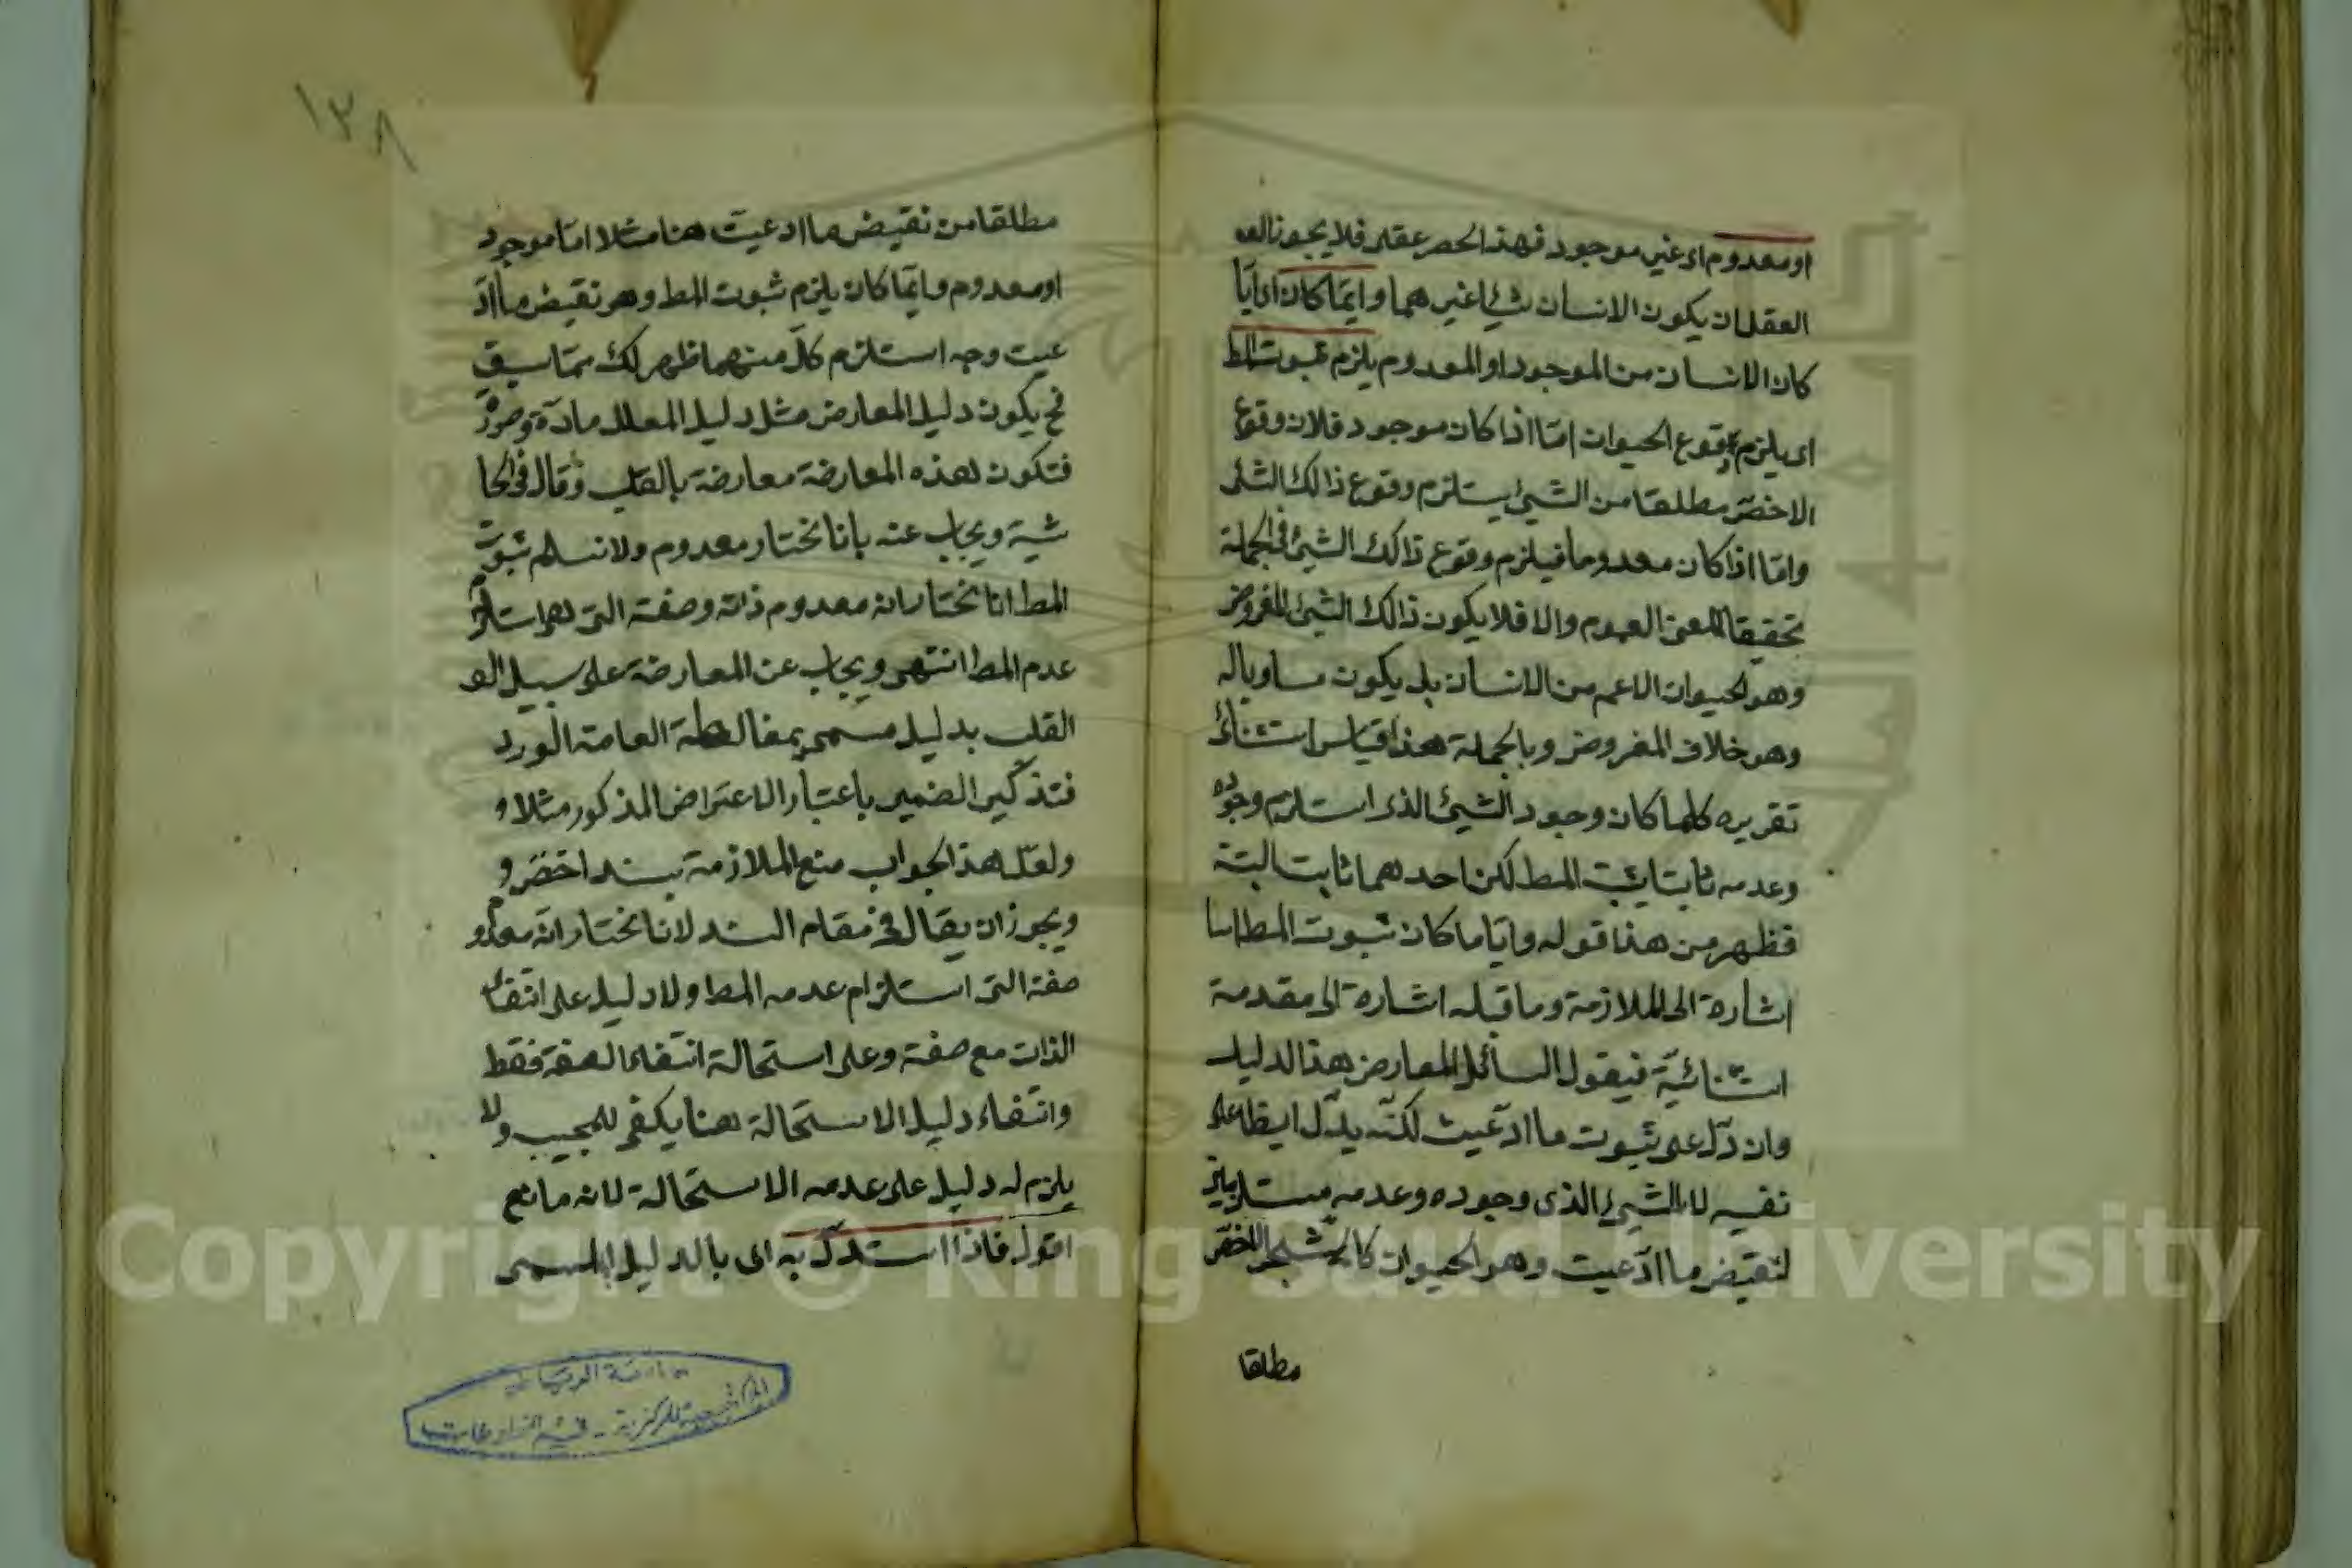 او معدوم اى غير موجود فهذا الحصر عقلى فلا يجوز
العقل ان يكون الانسان شيئا غير هما وايّما كان اى ايّا
كان الانسان من الموجود او المعدوم يلزم ثبوت المط
اى يلزم وقوع الحيوان امّا اذا كان موجود فلان وقوع
الاخصّ مطلقا من الشيئ يستلزم وقوع ذالك الشئى
وامّا اذا كان معدوما فيلزم وقوع ذالك الشيئ فى الجملة
تحقيقا لمعنى العموم والا فلا يكون ذالك الشيئ المفروض
وهو الحيوان الاعم من الانسان بل يكون مساويا له
وهو خلاف المفروض وبالجملة هذا قياس استثنائ
تقريره كلما كان وجود الشيئ الذى استلزم وجوده
وعدمه ثابتا يثبت المط لكن احدهما ثابت البتة
فظهر من هذا قوله وايّا ما كان ثبوت المط
اشارة الى الملازمة وما قبله اشارة الى مقدمة
استثنائيّة فيقول السائل المعارض هذا الدليل
وان دلّ على ثبوت ما ادّعيت لكنّه يدلّ ايضا على
نفيه لان الشيئ الذى وجوده وعدمه
لنقيض ما ادّعيت وهو الحيوان
مطلقا
١٣٨
مطلقا من نقيض ما ادعيت هنا مثلا امّا موجود
او معدوم وايّما كان يلزم ثبوت المط وهو نقيض ما ادّ
عيت وجه استلزم كلّ منهما ظهر لك ممّا سبق
فح يكون دليل المعارض مثل دليل المعلل مادّة وصورة
فتكون هذه المعارضة معارضة بالقلب وقال فى الحا
شية ويجاب عنه بانا نختار معدوم ولا نسلم ثبوت
المط انا نختار انه معدوم ذاته وصفته التى هى استلزم
عدم المط انتهى ويجاب عن المعارضة على سبيل
القلب بدليل مسمى بمغالطة العامة الورد
فتذكير الضمير باعتبار الاعتراض المذكور مثلا و
ولعلّ هذا الجواب منع الملازمة بسند اخصّ و
ويجوز ان يقال فى مقام السند لانا نختار انّه معدوم
صفته التى استلزام عدمه المط ولا دليل على انتفاء
الذات مع صفته وعلى استحالة انتفاء الصفة فقط
وانتفاء دليل الاستحالة هنا يكفى للمجيب ولا
يلزم له دليل على عدمه الاستحالة لانه مانع
اقول فاذا استدلّ به اى بالدليل المسمى
جامعة الرياض
المركزية - قسم المخطوطات
Copyright © King Saud University